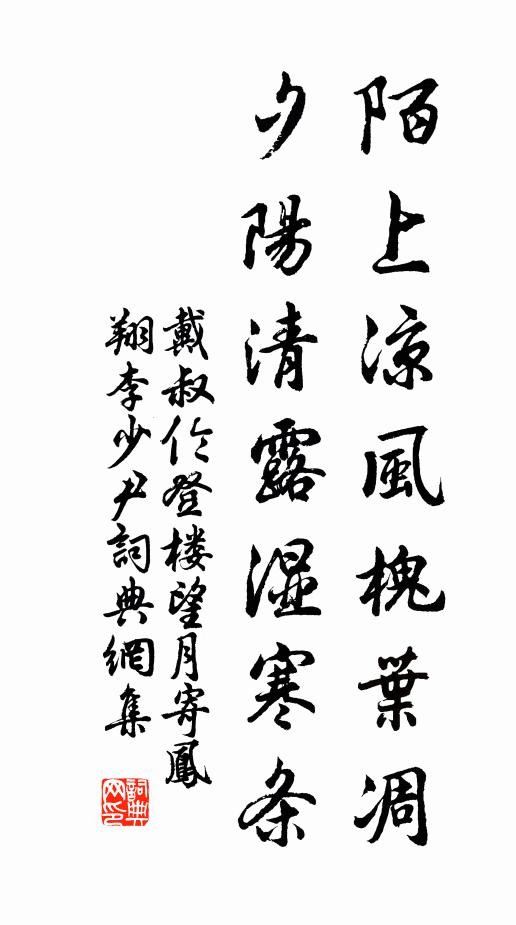 陌上涼風槐葉凋
夕陽清露濕寒条
戴叔伦登楼望月寄鳳
翔李少尹詞典網集
詞典
网印